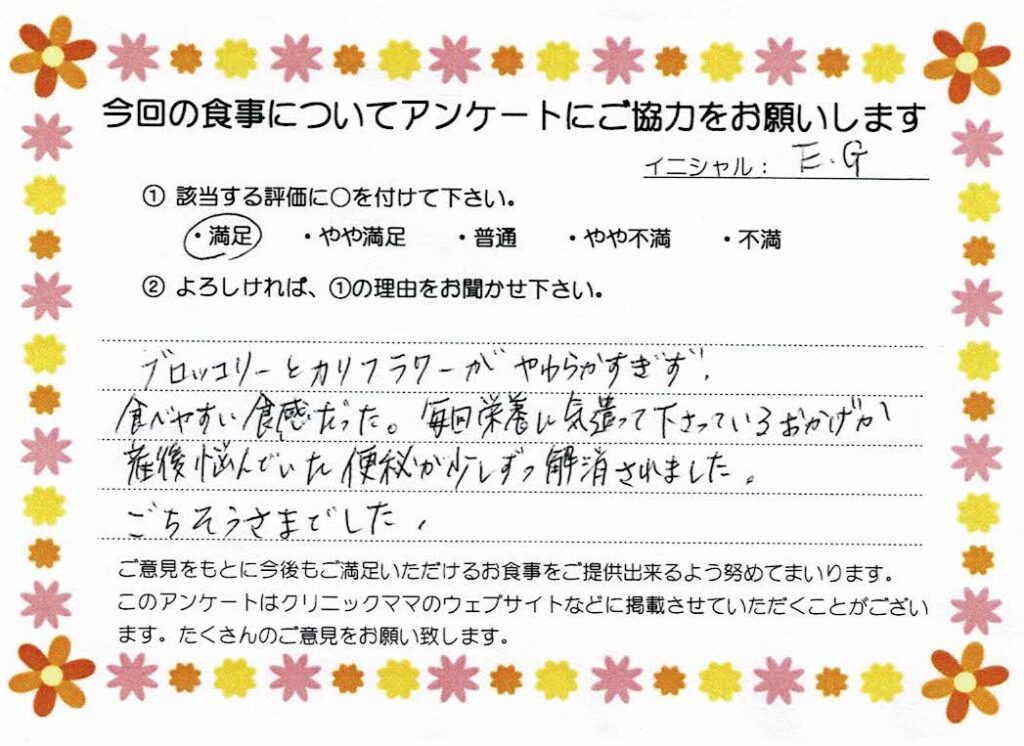 今回の食事についてアンケートにご協力をお願いします
イニシャル： E.G
① 該当する評価に○を付けて下さい。
・満足 ・やや満足 ・普通 ・やや不満 ・不満
② よろしければ、①の理由をお聞かせ下さい。
ブロッコリーとカリフラワーが やわらかすぎず、
食べやすい食感だった。毎回栄養に気遣って下さっているおかげか
産後悩んでいた便秘が少しずつ解消されました。
ごちそうさまでした。
ご意見をもとに今後もご満足いただけるお食事をご提供出来るよう努めてまいります。
このアンケートはクリニックママのウェブサイトなどに掲載させていただくことがござい
ます。たくさんのご意見をお願い致します。